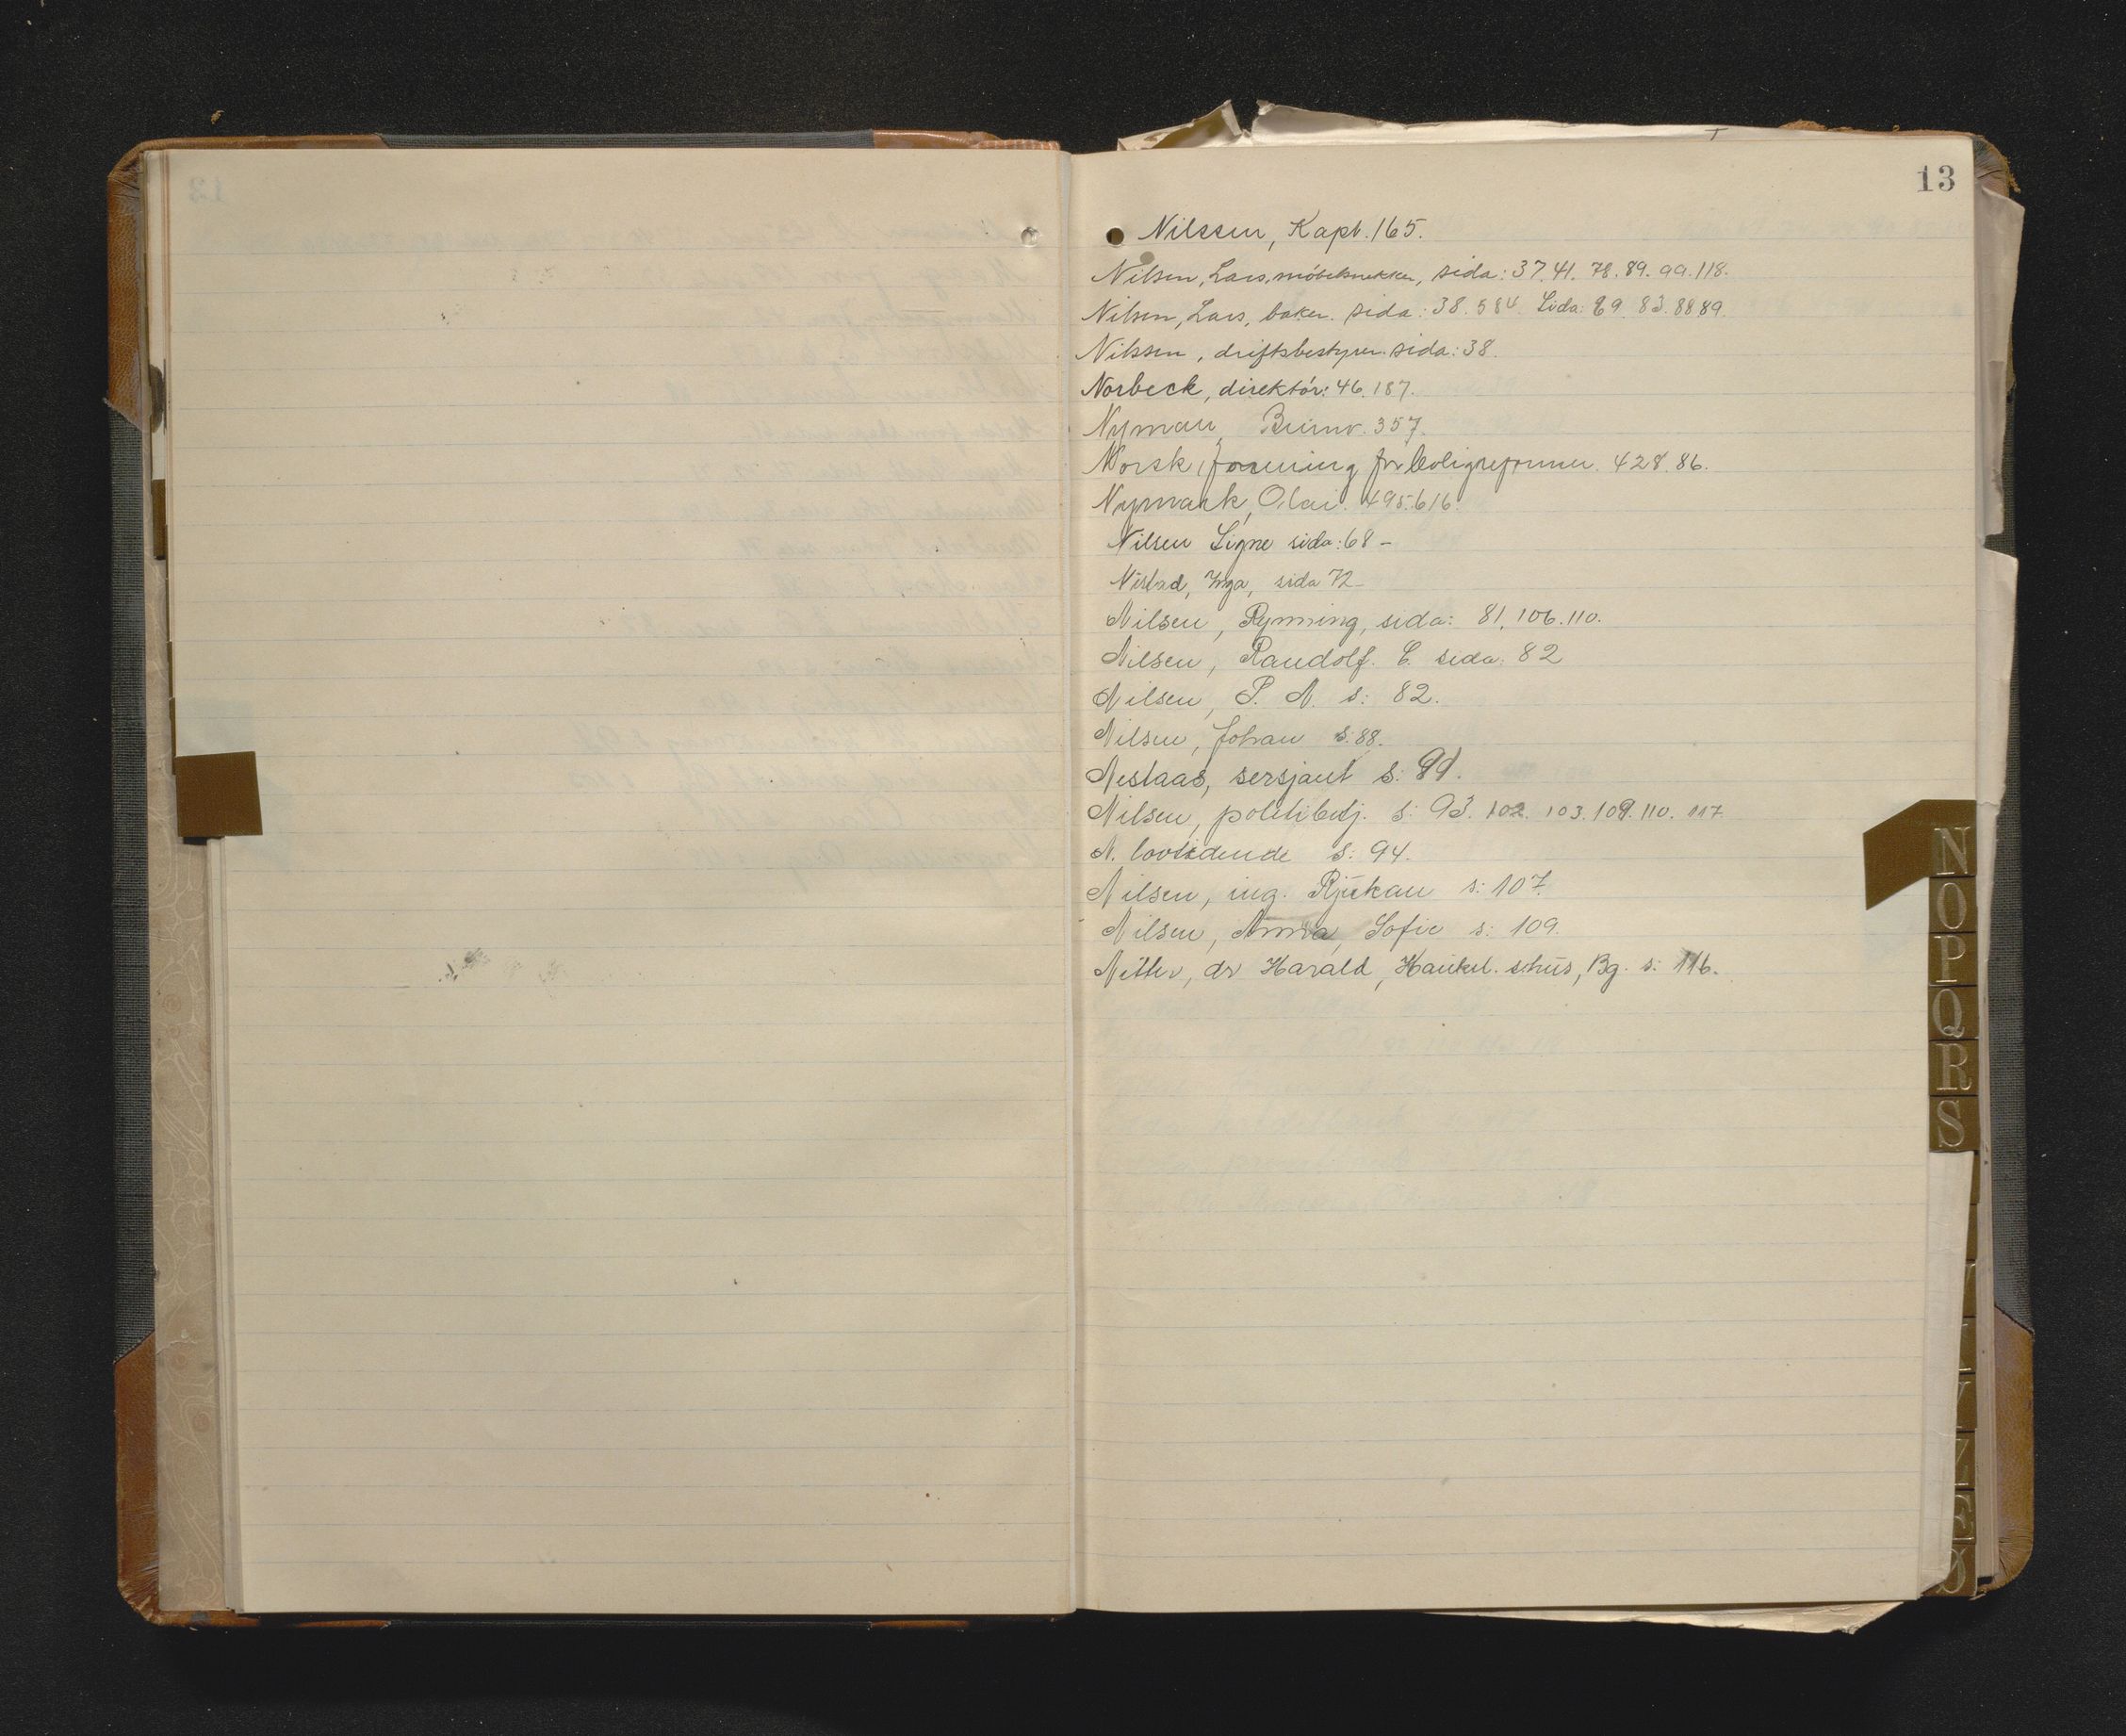 13
Nilssen, Kapt. 165.
Nilsen, Lars, møbelsnekker, sida: 37. 41. 78. 89. 99. 118.
Nilsen, Lars, baker. sida: 38. 584 Sida: 69. 83. 88 89.
Nilssen, driftsbestyrer. sida: 38.
Norbeck, direktór: 46. 187.
Nyman 357.
Norsk forening for boligreformer. 428. 86.
Nymark, Olai. 495. 616.
Nilsen Signe sida: 68 –
Nistad, Inga, sida 72
Nilsen, Rynning, sida: 81. 106. 110.
Nilsen, Randolf. E. sida: 82
Nilsen, P. N. s: 82.
Nilsen, Johan s: 88.
Nestaas, sersjant s:
Nilsen, politibetj. s: 93. 102. 103. 109. 110. 117
N. lovtidende s: 94.
Nilsen, ing. Rjukan s: 107.
Nilsen, Anna, Sofie s: 109.
Nitter, dr Harald, Haukel. sehus, Bg. s: 116.
N
O
P
Q
R
S
V
Z
Æ
Ø